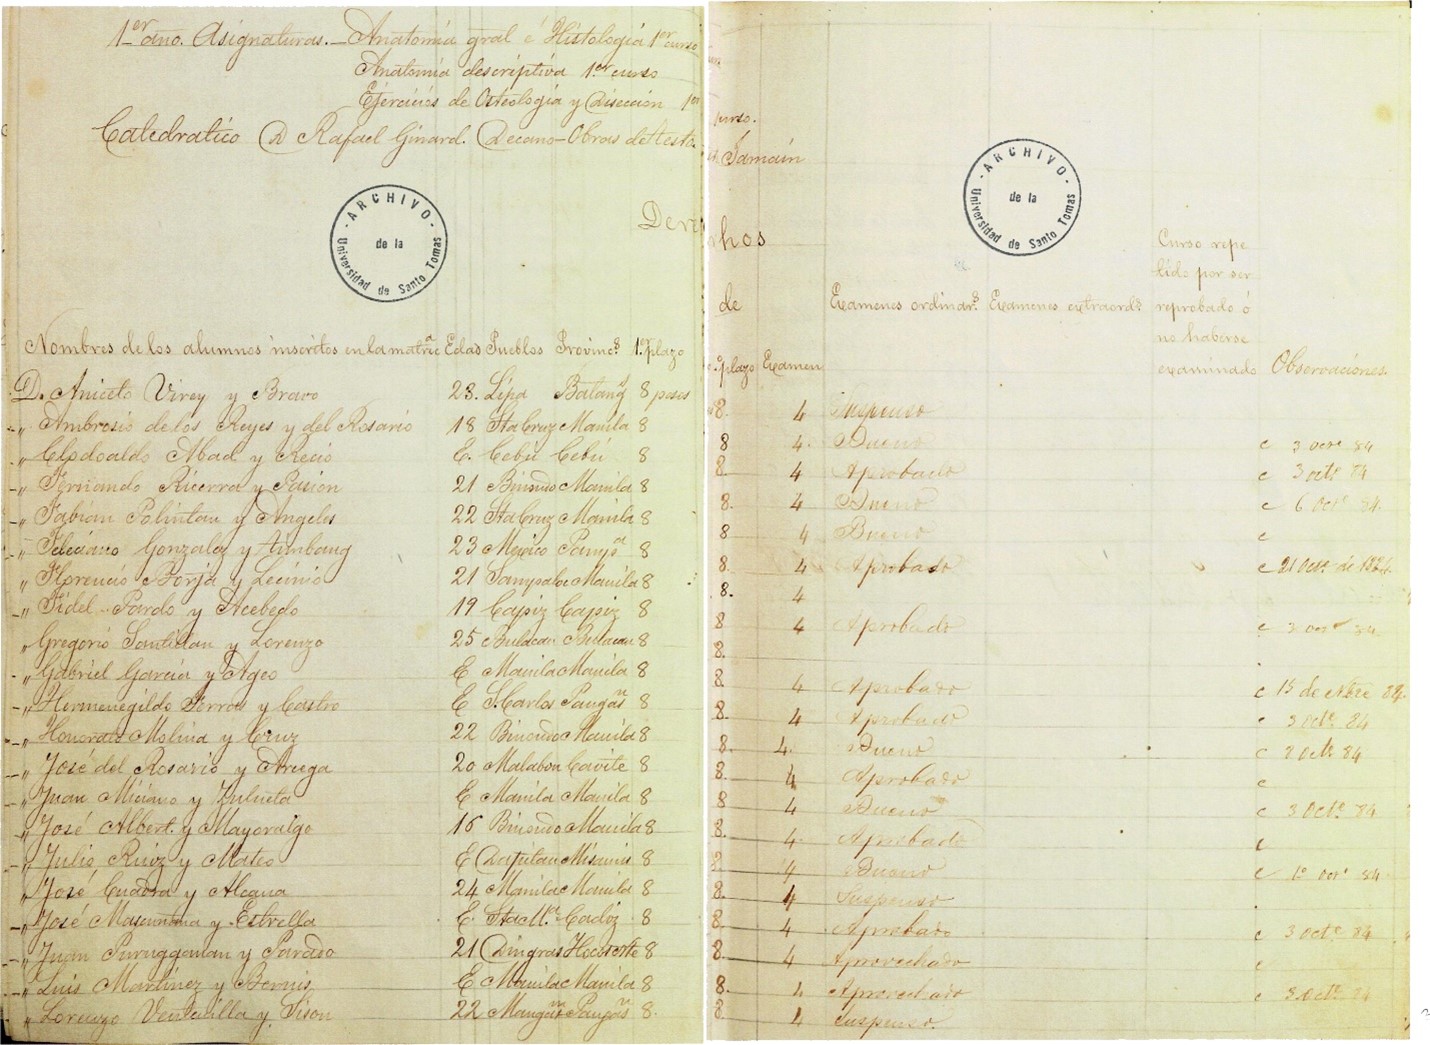 1er año. Asignaturas.—Anatomía gral é Histología 1er curso
Anatomía descriptiva 1er curso
Ejercicios de Osteología y Disección 1er
Catedratico D Rafael Ginard. Decano—Obras de Testo.
ARCHIVO
de la
Universidad de Santo Tomas
Nombres de los alumnos inscritos en la matric.a Edas Pueblos Provinc.s 1.er plazo
D. Aniceto Virey y Bravo 23. Lipa Batang.s 8 pesos
" Ambrosio de los Reyes y del Rosario 18 Sta Cruz Manila 8
" Abad y Recio E. Cebú Cebú 8
" Fernando Ricerra y Pasion 21 Binondo Manila 8
" Fabian Polintan y Angeles 22 Sta Cruz Manila 8
" Feliciano Gonzalez y 23 Mexico Pamp.a 8
" Florencio Borja y Lecinio 21 Sampaloc Manila 8
" Fidel Pardo y Acebedo 19 Capiz Capiz 8
" Gregorio Santillan y Lorenzo 25 Bulacan Bulacan 8
" Gabriel Garcia y Ageo E Manila Manila 8
" Hermenegildo y Castro E S. Carlos Pangas.n 8
" Honorato Molina y Cruz 22 Binondo Manila 8
" José del Rosario y Arcega 20 Malabon Cavite 8
" Juan Miciano y Zulueta E Manila Manila 8
" José Albert y Mayoralgo 16 Binondo Manila 8
" Julio Ruiz y Mateo E Dapitan Misamis 8
" José Cuadra y Alcana 24 Manila Manila 8
" José y Estrella E. Sta M.a Cadiz 8
" Juan Purugganan y Parado 21 Dingras Ilocos Nte 8
" Luis Martinez y Bernis E Manila Manila 8
" Lorenzo Ventanilla y Sison 22 Pangas.n 8.
curso.
ARCHIVO
de la
Universidad de Santo Tomas
Curso repe
tido por ser
de Examenes ordinar.s Examenes extraord.s reprobado ó
no haberse
plazo Examen examinado Observaciones.
8. 4 Suspenso
8 4. Bueno c 3 Oct.e 84
8. 4 Aprobado c 3 oct.e 84
8. 4 Bueno c 6 Oct.e 84.
8 4 Bueno c
8. 4 Aprobado c 21 Oct.e de 1884.
8. 4
8 4 Aprobado c 3 oct.e 84
8
8. 4 Aprobado c 15 de Nbre 84.
8. 4 Aprobado c 3 Oct.e 84
8. 4. Bueno c 2 Oct.e 84
8. 4 Aprobado c
8. 4 Bueno c 3 Oct.e 84
8. 4. Aprobado c
8 4 Bueno c 1.o Oct.e 84
8. 4 Suspenso
8. 4 Aprobado c 3 Oct.e 84
8. 4 Aprovechado c
8. 4 Aprovechado c 3 Oct.e 84
8. 4 Suspenso.